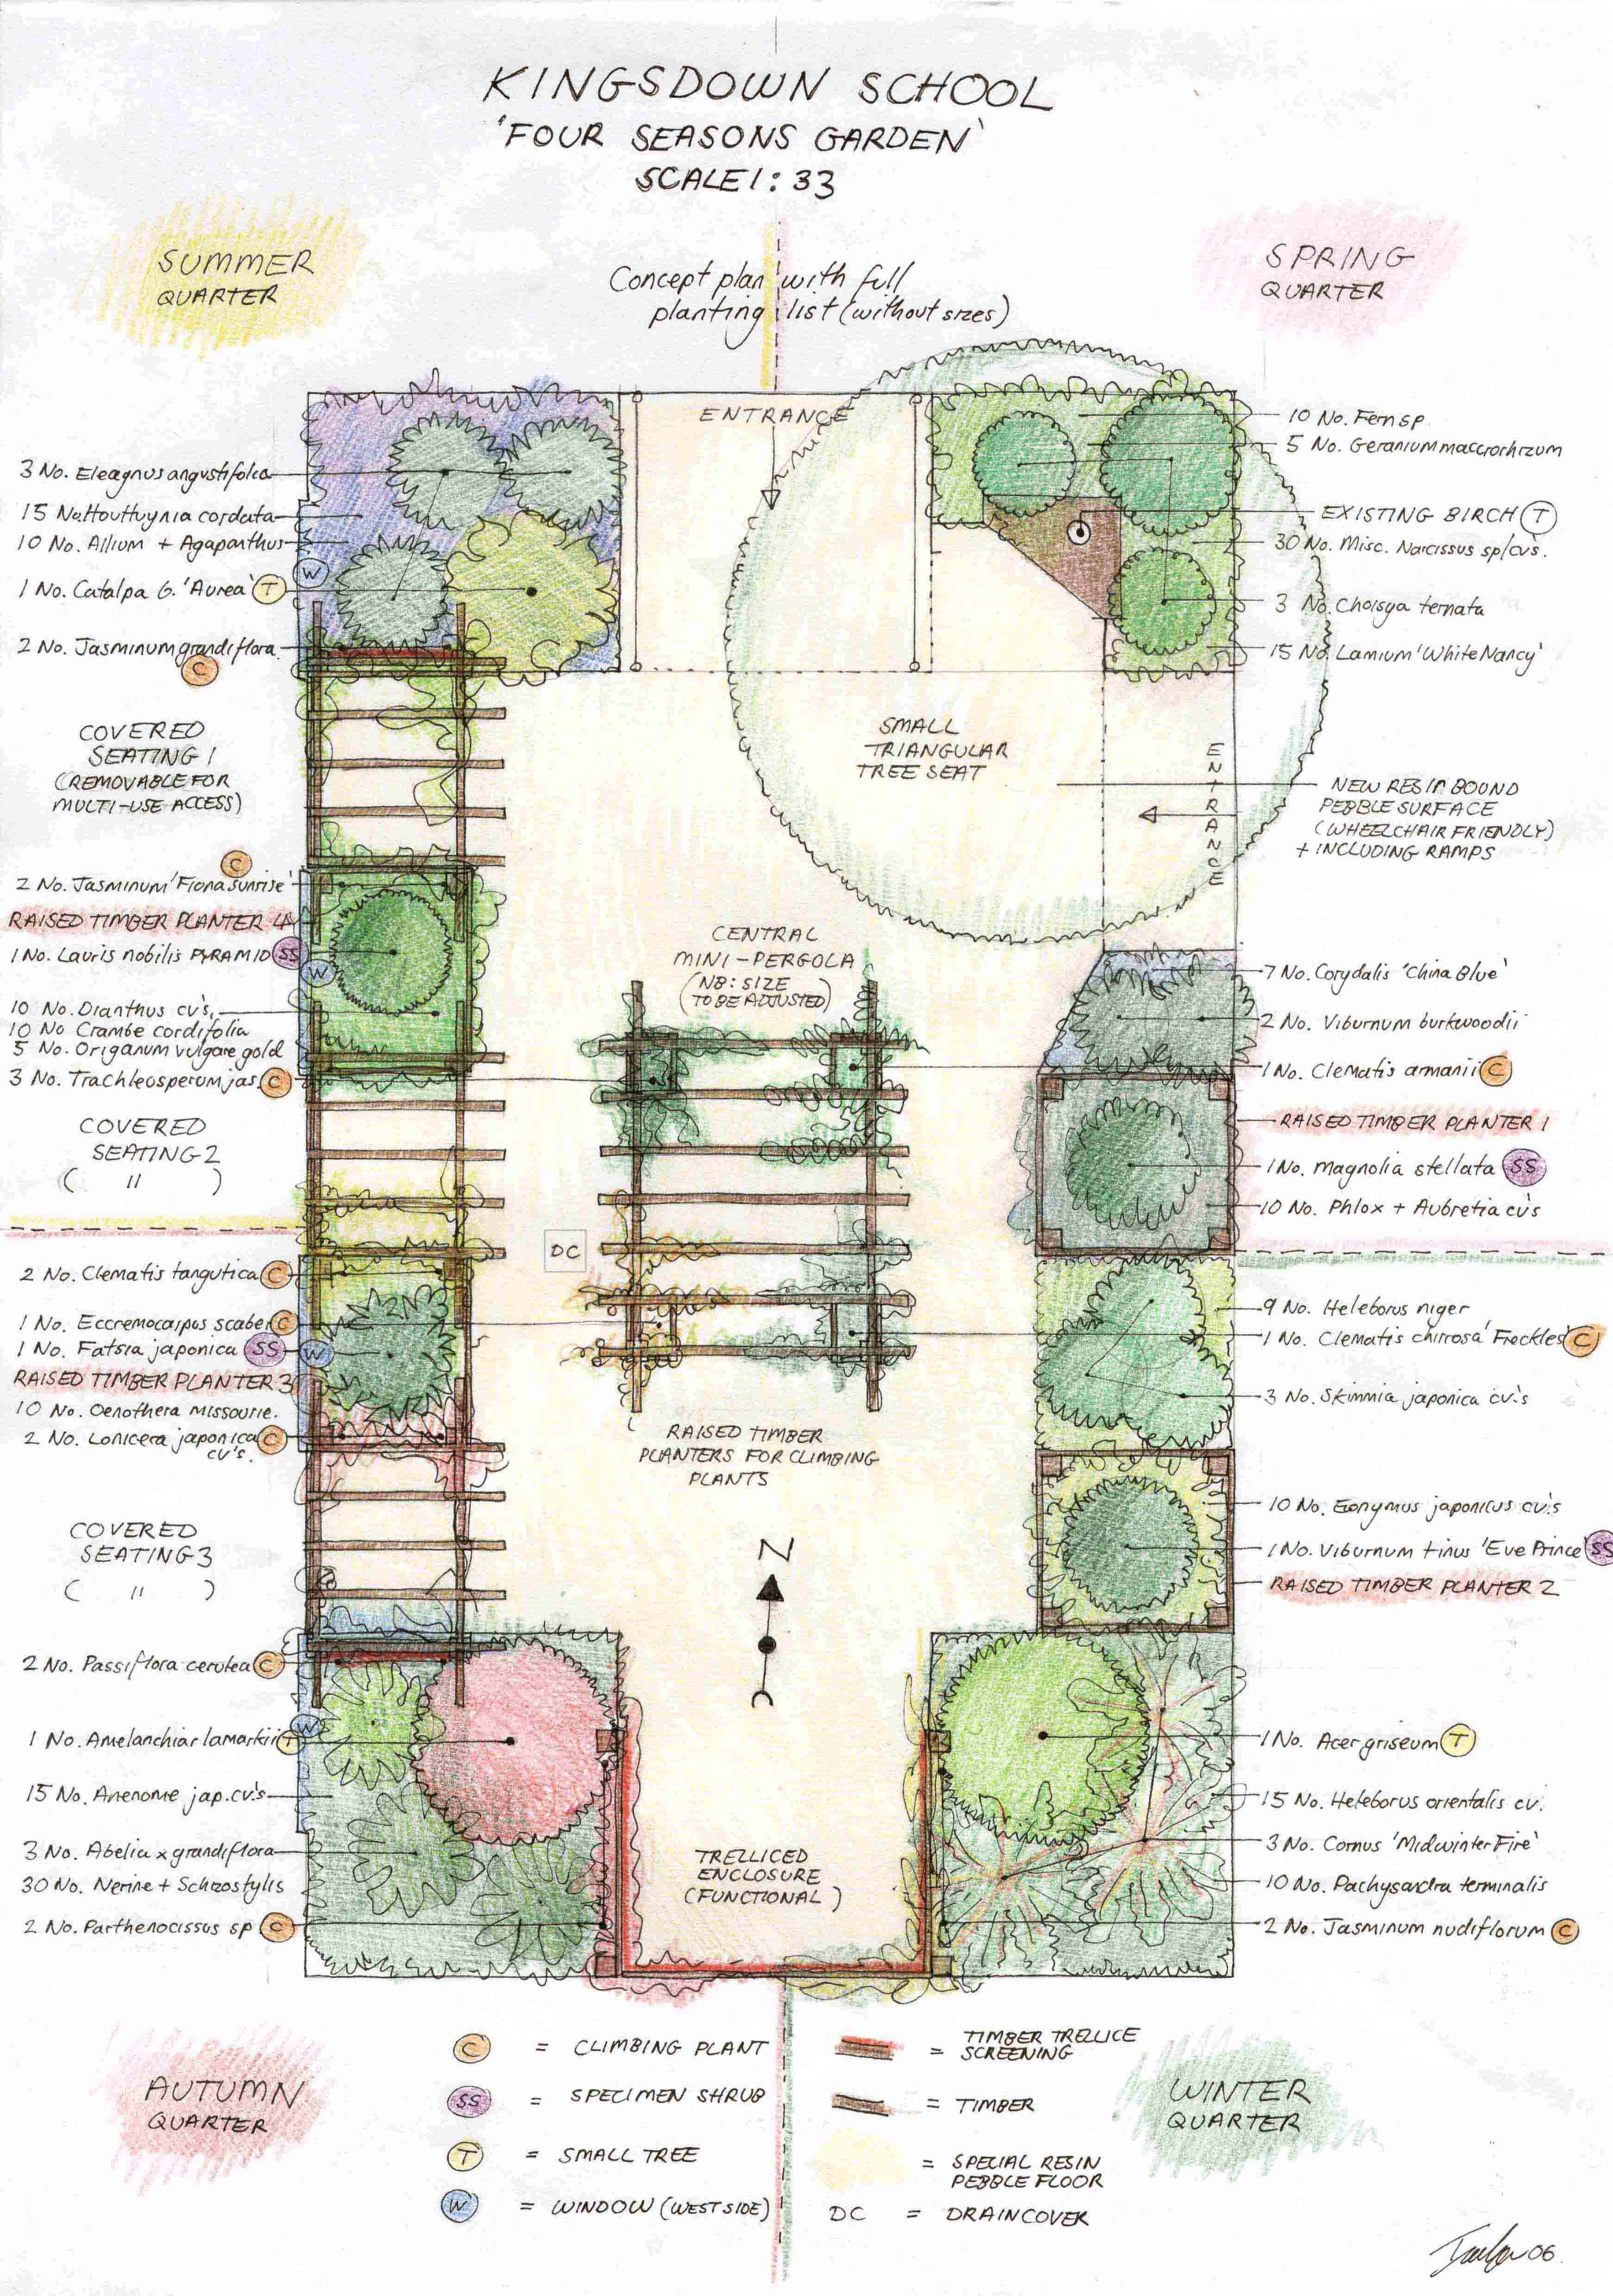 KINGSDOWN SCHOOL
'FOUR SEASONS GARDEN'
SCALE 1:33
SUMMER
QUARTER
Concept plan with full
planting list (without sizes)
SPRING
QUARTER
ENTRANCE
3 No. Eleagnus angustifolia
15 No. Houttuynia cordata
10 No. Allium + Agapanthus
W
1 No. Catalpa G. 'Aurea' T
2 No. Jasminum grandiflora
C
COVERED
SEATING 1
(REMOVABLE FOR
MULTI-USE ACCESS)
C
2 No. Jasminum 'Fiona Sunrise'
RAISED TIMBER PLANTER 4
1 No. Lauris nobilis PYRAMID SS
W
10 No. Dianthus cv's,
10 No Crambe cordifolia
5 No. Origanum vulgare gold
3 No. Trachleosperum jas. C
COVERED
SEATING 2
( " )
2 No. Clematis tangutica C
1 No. Eccremocarpus scaber C
1 No. Fatsia japonica SS W
RAISED TIMBER PLANTER 3
10 No. Oenothera missourie.
2 No. Lonicera japonica C
cv's.
COVERED
SEATING 3
( " )
2 No. Passiflora cerulea C
W
1 No. Amelanchiar lamarkii T
15 No. Anenome jap. cv's
3 No. Abelia x grandiflora
30 No. Nerine + Schizostylis
2 No. Parthenocissus sp C
SMALL
TRIANGULAR
TREE SEAT
ENTRANCE
CENTRAL
MINI-PERGOLA
(NB: SIZE
TO BE ADJUSTED)
DC
RAISED TIMBER
PLANTERS FOR CLIMBING
PLANTS
N
TRELLICED
ENCLOSURE
(FUNCTIONAL)
10 No. Fern sp.
5 No. Geranium maccrorhizum
EXISTING BIRCH T
30 No. Misc. Narcissus sp/cv's.
3 No. Choisya ternata
15 No. Lamium 'White Nancy'
NEW RESIN BOUND
PEBBLE SURFACE
(WHEELCHAIR FRIENDLY)
+ INCLUDING RAMPS
7 No. Corydalis 'China Blue'
2 No. Viburnum burkwoodii
1 No. Clematis armanii C
RAISED TIMBER PLANTER 1
1 No. Magnolia stellata SS
10 No. Phlox + Aubretia cv's
9 No. Heleborus niger
1 No. Clematis chirrosa 'Freckles' C
3 No. Skimmia japonica cv's
10 No. Eonymus japonicus cv's
1 No. Viburnum tinus 'Eve Prince' SS
RAISED TIMBER PLANTER 2
1 No. Acer griseum T
15 No. Heleborus orientalis cv.
3 No. Cornus 'Midwinter Fire'
10 No. Pachysandra terminalis
2 No. Jasminum nudiflorum C
AUTUMN
QUARTER
C = CLIMBING PLANT
SS = SPECIMEN SHRUB
T = SMALL TREE
W = WINDOW (WEST SIDE)
= TIMBER TRELLICE
SCREENING
= TIMBER
= SPECIAL RESIN
PEBBLE FLOOR
DC = DRAIN COVER
WINTER
QUARTER
06